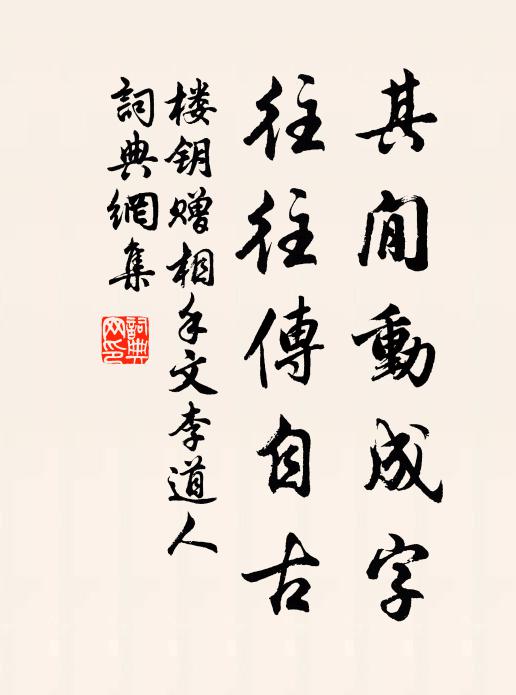 其間動成字
往往傳自古
楼钥赠相手文李道人
詞典網集
詞典網印